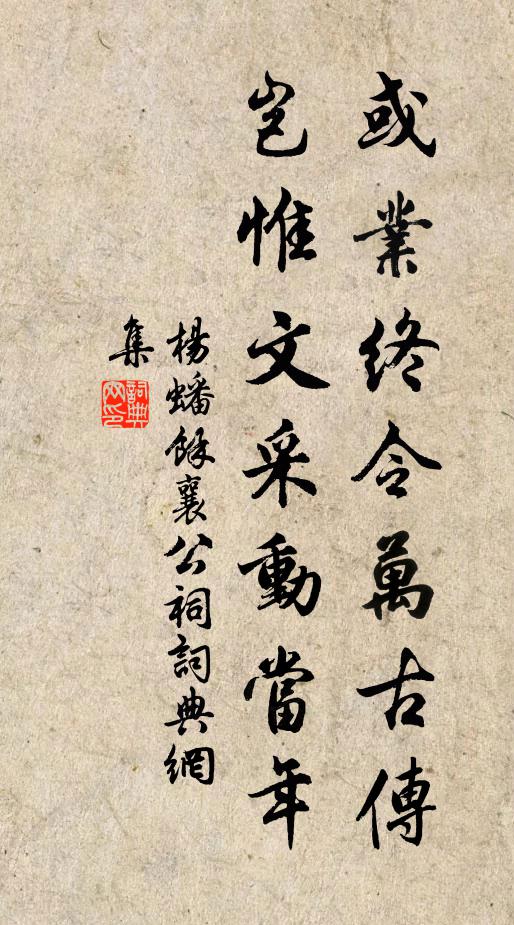 或業終令萬古傳
豈惟文采動當年
楊蟠餘襄公祠詞典網
集
詞典
网印